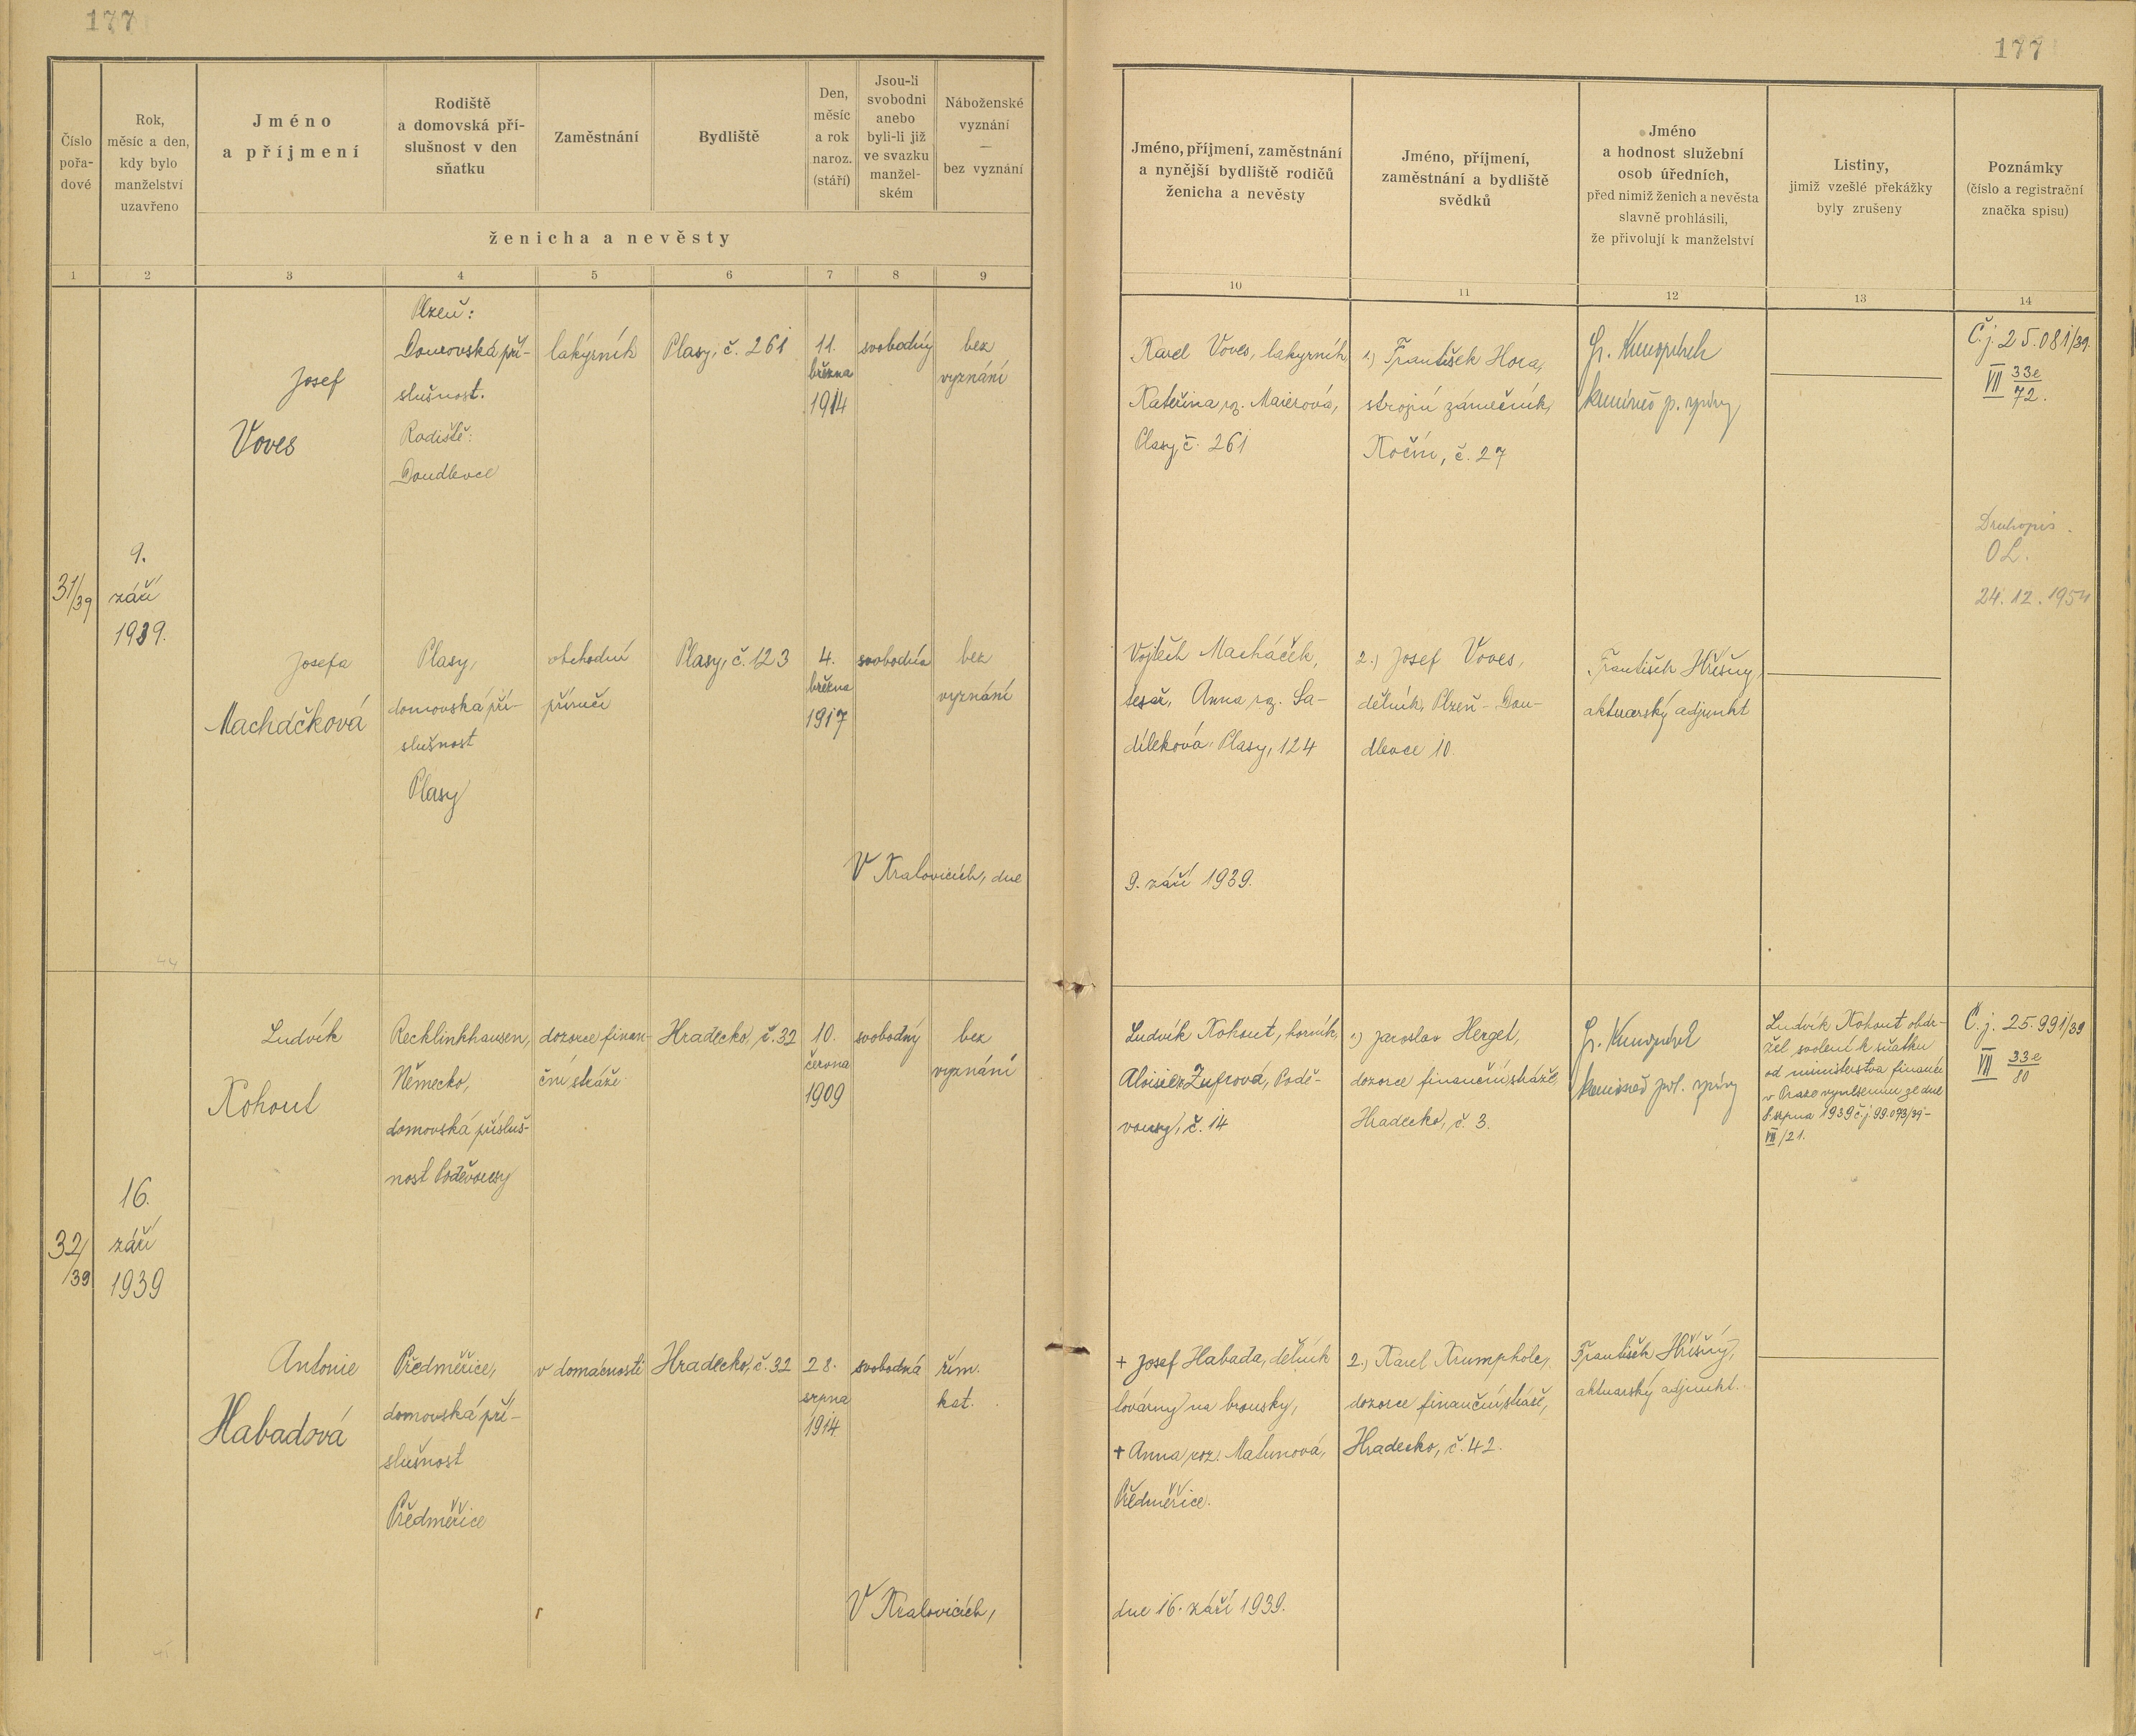 177
177
Číslo
pořa-
dové
Rok,
měsíc a den,
kdy bylo
manželství
uzavřeno
Jméno
a příjmení
Rodiště
a domovská pří-
slušnost v den
sňatku
Zaměstnání
Bydliště
Den,
měsíc
a rok
naroz.
(stáří)
Jsou-li
svobodni
anebo
byli-li již
ve svazku
manžel-
ském
Náboženské
vyznání
—
bez vyznání
ženicha a nevěsty
Jméno, příjmení, zaměstnání
a nynější bydliště rodičů
ženicha a nevěsty
Jméno, příjmení,
zaměstnání a bydliště
svědků
Jméno
a hodnost služební
osob úředních,
před nimiž ženich a nevěsta
slavně prohlásili,
že přivolují k manželství
Listiny,
jimiž vzešlé překážky
byly zrušeny
Poznámky
(číslo a registrační
značka spisu)
1 2 3 4 5 6 7 8 9 10 11 12 13 14
31/39
9.
září
1939.
Josef
Voves
Plzeň:
Domovská pří-
slušnost.
Rodiště:
Doudlevce
lakýrník
Plasy, č. 261
11.
března
1914
svobodný
bez
vyznání
Karel Voves, lakyrník,
Kateřina, roz. Maierová,
Plasy, č. 261
1.) František Hora,
strojní zámečník,
Kočín, č. 27
Č. j. 25.081/39.
VII 33e/72.
Druhopis.
OL.
24. 12. 1954
Josefa
Macháčková
Plasy,
domovská pří-
slušnost
Plasy
obchodní
příručí
Plasy, č. 123
4.
března
1917
svobodná
bez
vyznání
Vojtěch Macháček,
tesař, Anna roz. Sa-
díleková, Plasy, 124
2.) Josef Voves,
dělník, Plzeň - Dou-
dlevce 10.
František Hříšný,
aktuarský adjunkt
V Kralovicích, dne
9. září 1939.
32/39
16.
září
1939
Ludvík
Kohout
Recklinkhausen,
Německo,
domovská přísluš-
nost Poděvousy
dozorce finan-
ční stráže
Hradecko, č. 32
10.
června
1909
svobodný
bez
vyznání
Ludvík Kohout, horník,
Aloisie Zuprová, Podě-
vousy, č. 14
1.) Jaroslav Herget,
dozorce finanční stráže,
Hradecko, č. 3.
Ludvík Kohout obdr-
žel svolení k sňatku
od ministerstva financí
v Praze vynesením ze dne
8. srpna 1939 č. j. 99.093/39-
VII/21.
Č. j. 25.991/39
VII 33e/80
Antonie
Habadová
Předměřice,
domovská pří-
slušnost
Předměřice
v domácnosti
Hradecko, č. 32
28.
srpna
1914
svobodná
řím.
kat.
+ Josef Habada, dělník
továrny na brousky,
+ Anna roz. Matunová,
Předměřice.
2.) Karel Krumpholc,
dozorce finanční stráže,
Hradecko, č. 42.
František Hříšný,
aktuarský adjunkt.
V Kralovicích,
dne 16. září 1939.